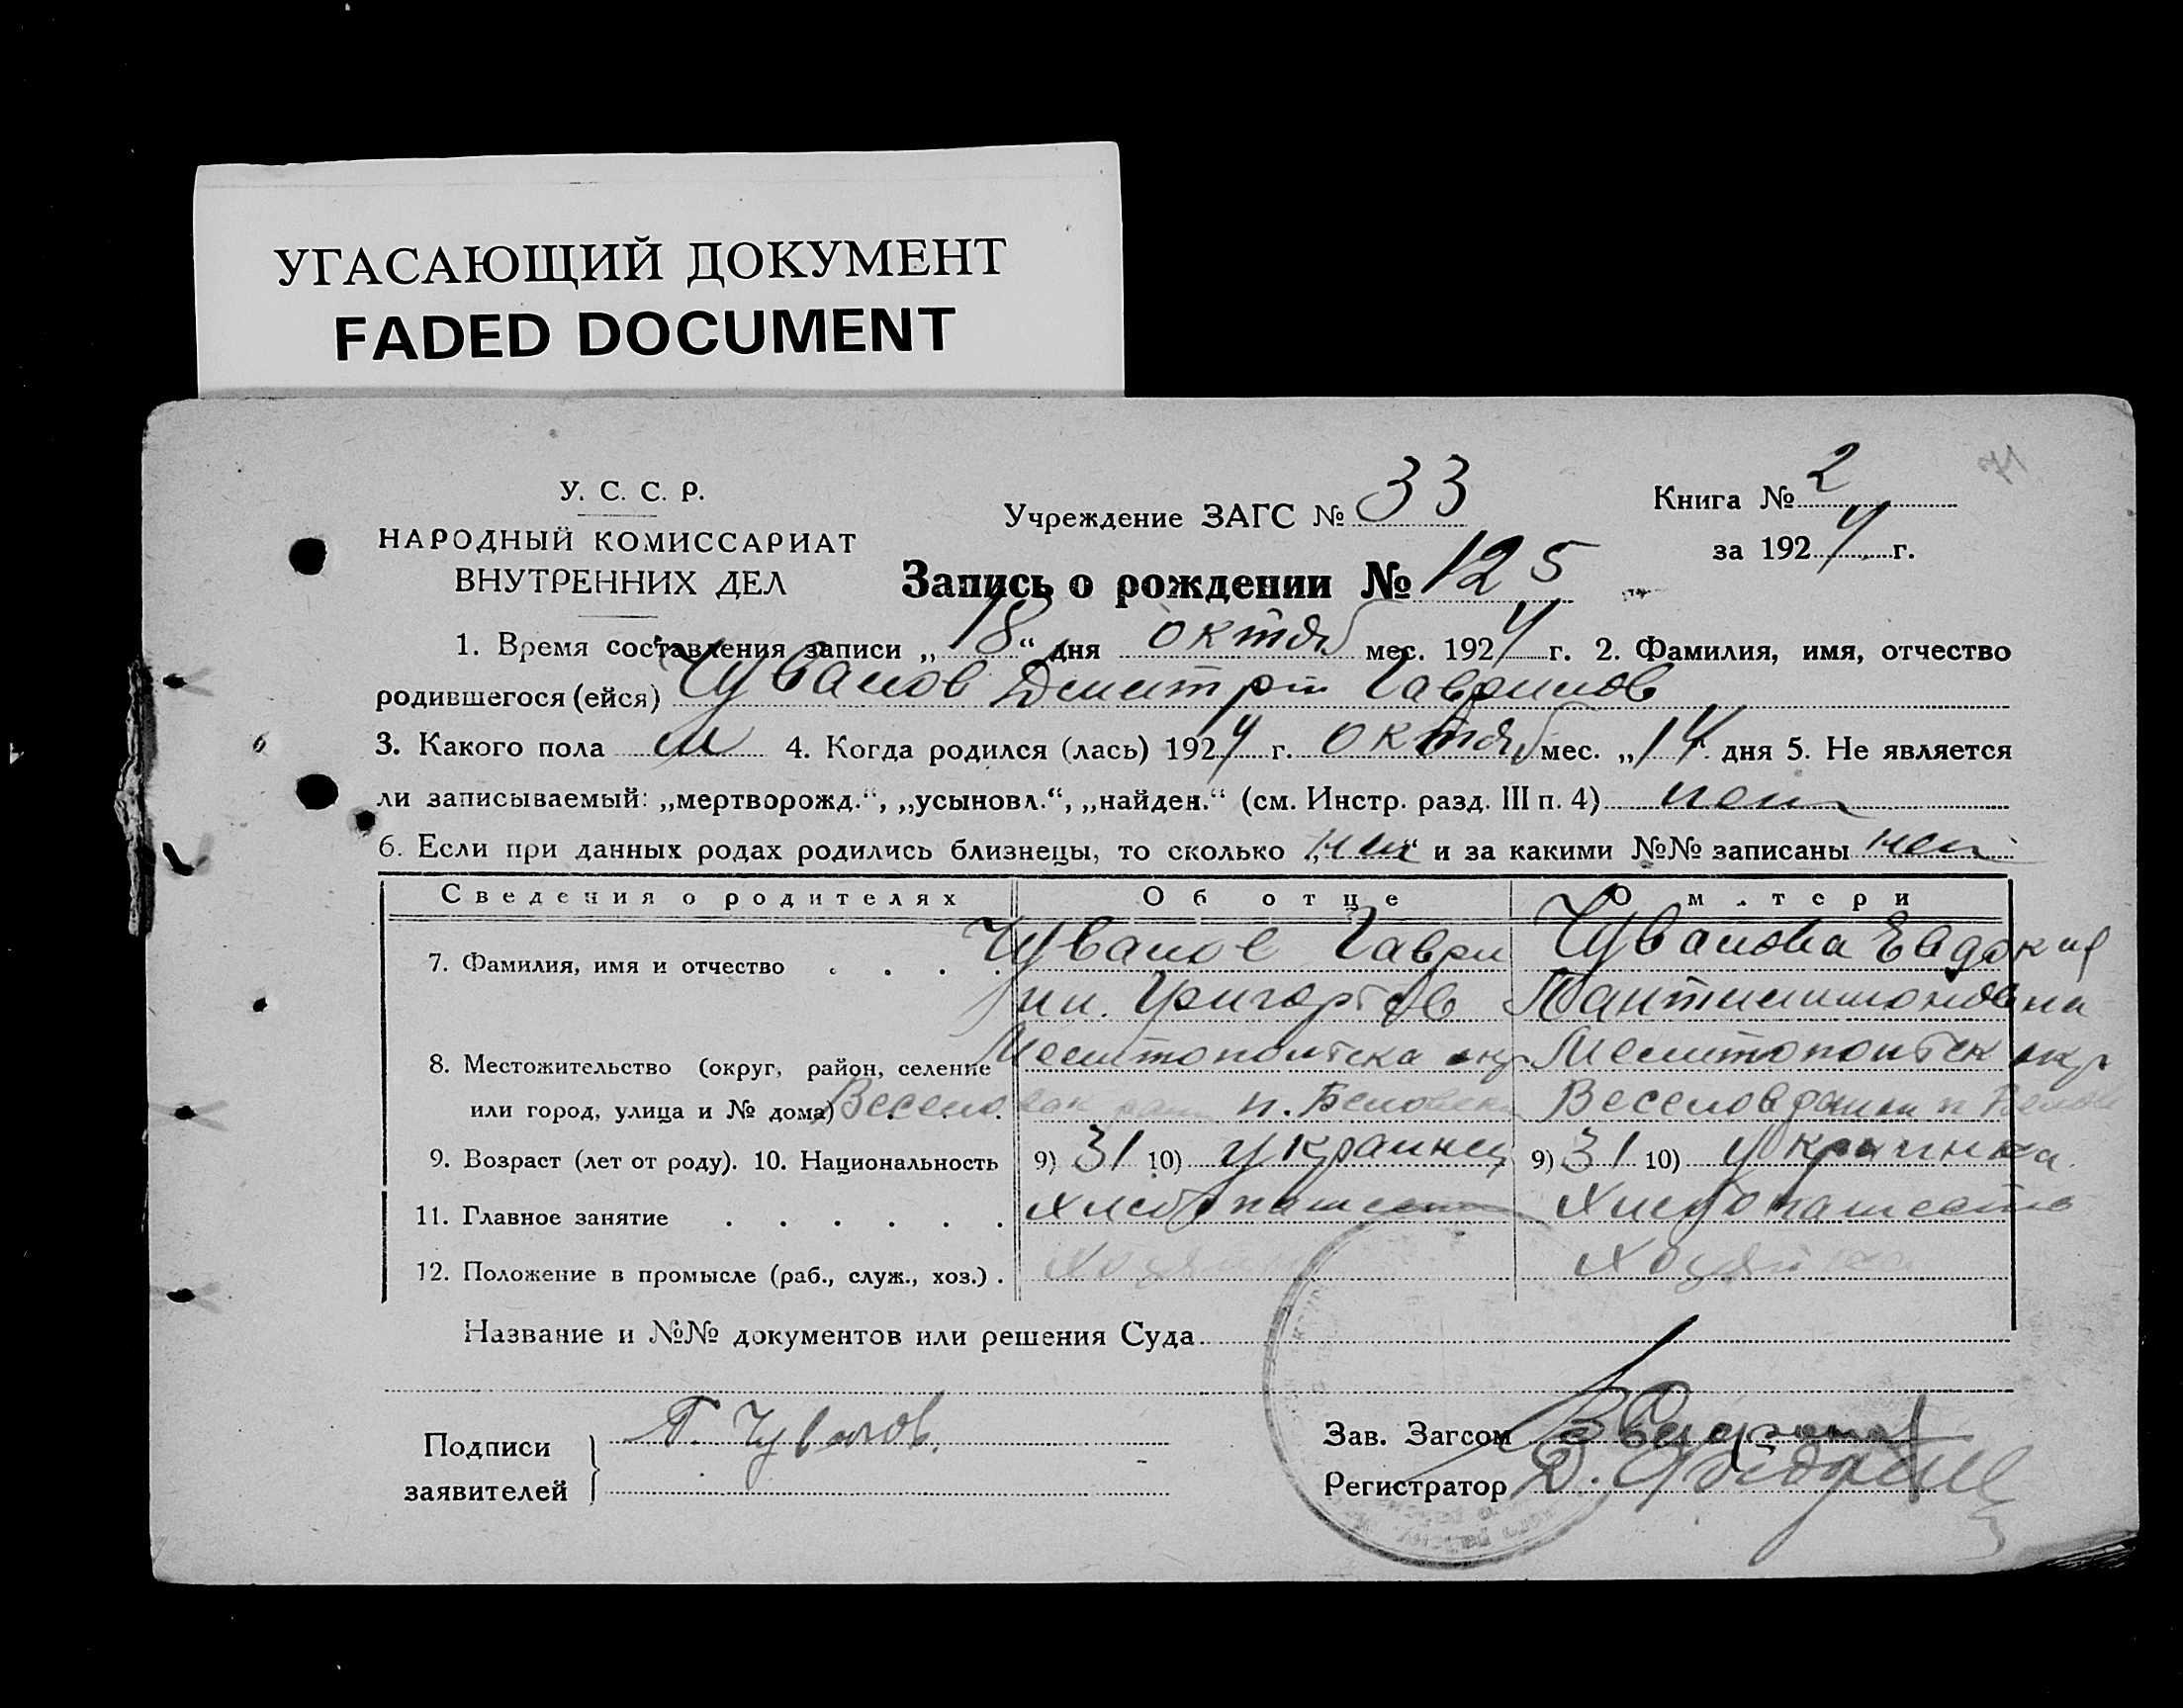 УГАСАЮЩИЙ ДОКУМЕНТ
FADED DOCUMENT
У. С. С. Р.
НАРОДНЫЙ КОМИССАРИАТ
ВНУТРЕННИХ ДЕЛ
Учреждение ЗАГС № 33
Книга № 2
за 1924 г.
Запись о рождении № 125
1. Время составления записи „18“ дня октяб мес. 1924 г. 2. Фамилия, имя, отчество
родившегося (ейся) Чувалов Дмитрій Гаврилов
3. Какого пола м 4. Когда родился (лась) 1924 г. октяб мес. „14 дня 5. Не является
ли записываемый: „мертворожд.“, „усыновл.“, „найден.“ (см. Инстр. разд. III п. 4) нет
6. Если при данных родах родились близнецы, то сколько „нет“ и за какими №№ записаны нет
Сведения о родителях Об отце О м.тери
7. Фамилия, имя и отчество . . . . Чувалов Гаври Чувалова Евдокия
ил. Григоріев Пантилимоновна
8. Местожительство (округ, район, селение Мелитопольска окр Мелитопольск окр
или город, улица и № дома) Весело п. Беловски Веселов п
9. Возраст (лет от роду). 10. Национальность 9) 31 10) украинец 9) 31 10) украинка
11. Главное занятие . . . . . . Хлебопашест Хлебопашество
12. Положение в промысле (раб., служ., хоз.) . Хозяин Хозяйка
Название и №№ документов или решения Суда
Подписи
заявителей
Г. Чувалов.
Зав. Загсом
Регистратор Д.